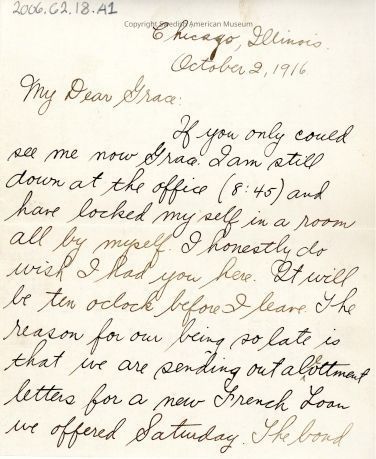 2006.C2.18.A1
Copyright Swedish American Museum
Chicago, Illinois.
October 2, 1916
My Dear Grace:
If you only could
see me now Grace. I am still
down at the office (8:45) and
have locked my self in a room
all by myself. I honestly do
wish I had you here. It will
be ten oclock before I leave. The
reason for our being so late is
that we are sending out allottment
letters for a new French Loan
we offered Saturday. The bond